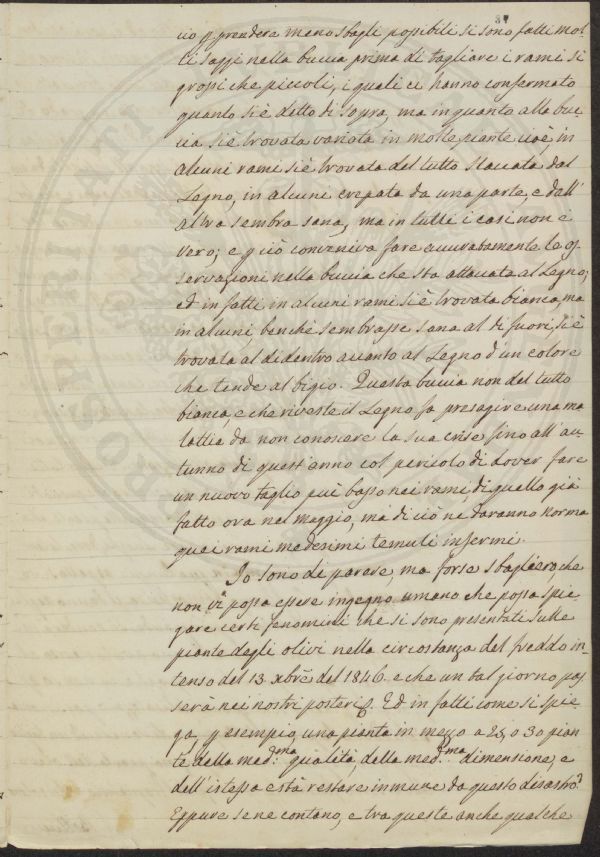 37
ciò p. prendere meno sbagli possibili si sono fatti mol-
ti saggi nella buccia prima di tagliare i rami sì
grossi che piccoli, i quali ci hanno confermato
quanto si è detto di sopra, ma in quanto alla buc-
cia si è trovata variata in molte piante cioè, in
alcuni rami si è trovata del tutto staccata dal
Legno, in alcuni crepata da una parte, e dall'
altra sembra sana, ma in tutti i casi non è
vero; e p. ciò conveniva fare accuratamente le os-
servazioni nella buccia che sta attaccata al Legno;
ed in fatti in alcuni rami si è trovata bianca, ma
in alcuni, benchè sembrasse sana al di fuori, si è
trovata al di dentro accanto al Legno d'un colore
che tende al bigio. Questa buccia non del tutto
bianca, e che riveste il Legno fa presagire una ma-
lattia da non conoscere la sua crise fino all'au-
tunno di quest'anno col pericolo di dover fare
un nuovo taglio più basso nei rami, di quello già
fatto ora nel Maggio, ma di ciò ne daranno norma
quei rami medesimi temuti infermi.
Io sono di parere, ma forse sbaglierò, che
non vi possa essere ingegno umano che possa spie-
gare certi fenomeni che si sono presentati sulle
piante degli olivi nella circostanza del freddo in-
tenso del 13 xbre del 1846. e che un tal giorno pas-
serà nei nostri posteri. Ed in fatti come si spie-
ga, p. esempio, una pianta in mezzo a 25, o 30 pian-
te della med.ma qualità, della med.ma dimensione, e
dell'istessa età restare immune da questo disastro?
Eppure se ne contano, e tra queste anche qualche
PROSPERITATI